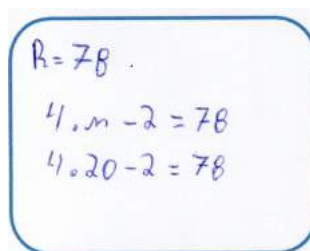 R = 78.
4.n - 2 = 78
4.20 - 2 = 78